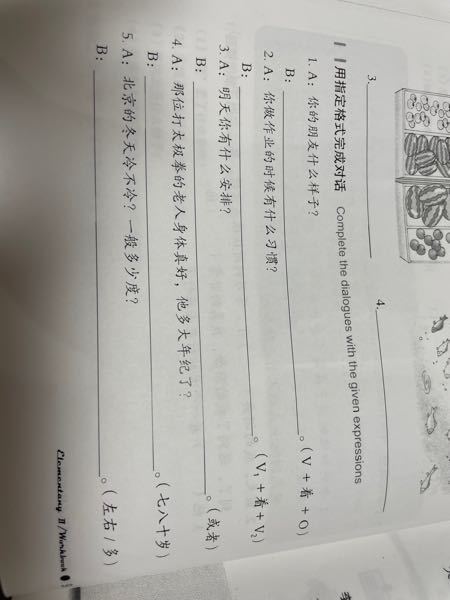 3.
4.
用指定格式完成对话 Complete the dialogues with the given expressions
1. A: 你的朋友什么样子?
B: 。(V + 着 + O)
2. A: 你做作业的时候有什么习惯?
B: 。(V₁ + 着 + V₂)
3. A: 明天你有什么安排?
B: 。(或者)
4. A: 那位打太极拳的老人身体真好, 他多大年纪了?
B: 。(七八十岁)
5. A: 北京的冬天冷不冷? 一般多少度?
B: 。(左右 / 多)
Elementary II/Workbook